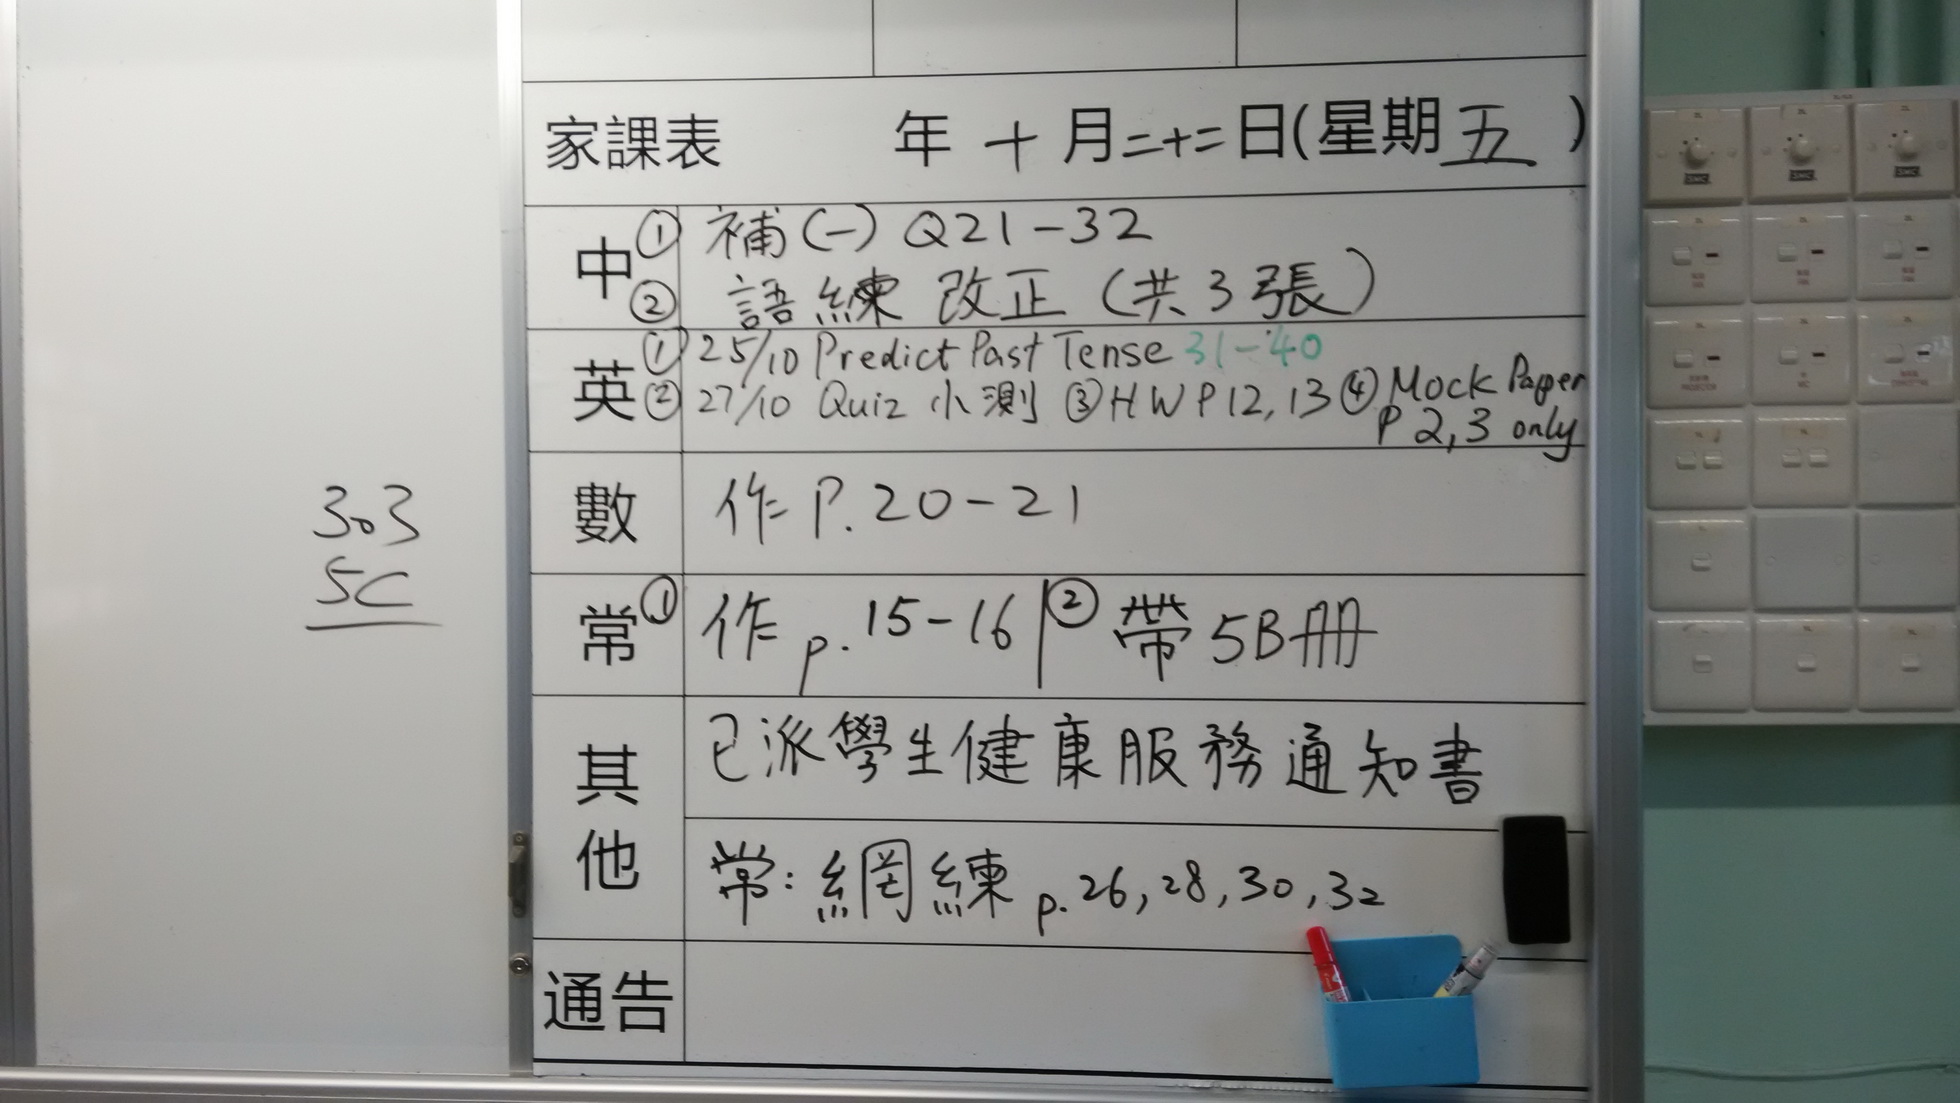 303
5C
家課表 年 十 月 二十二 日(星期 五 )
中 ① 補(一) Q21-32
② 語練 改正 (共3張)
英 ① 25/10 Predict Past Tense 31-40
② 27/10 Quiz 小測 ③ HW P12, 13 ④ Mock Paper
P 2, 3 only
數 作 P. 20-21
常 ① 作 p. 15-16 ② 帶 5B冊
其他 已派學生健康服務通知書
常: 網練 p. 26, 28, 30, 32
通告